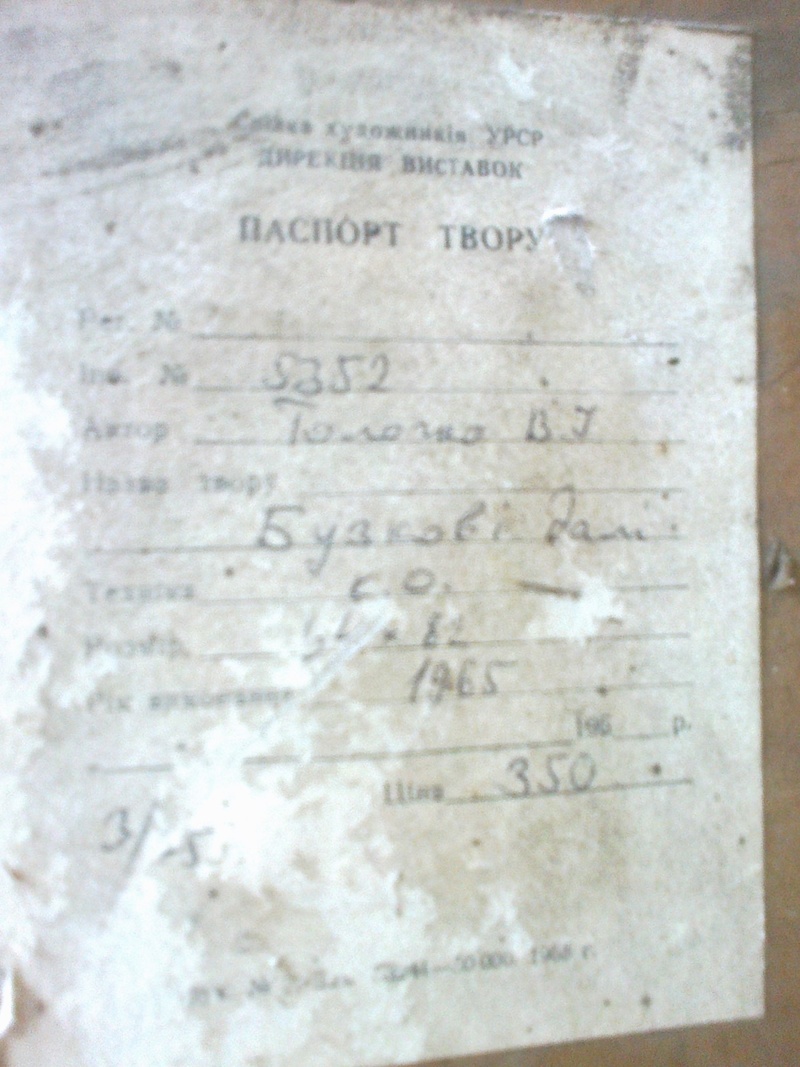 Спілка художників УРСР
ДИРЕКЦІЯ ВИСТАВОК
ПАСПОРТ ТВОРУ
Рег. №
Інв. № 5352
Автор Толочко В І
Назва твору
Бузкові далі
Техніка с. о.
Розмір х 82
Рік виконання 1965
196 р.
Ціна 350
3/ -5
№ 1968 г.